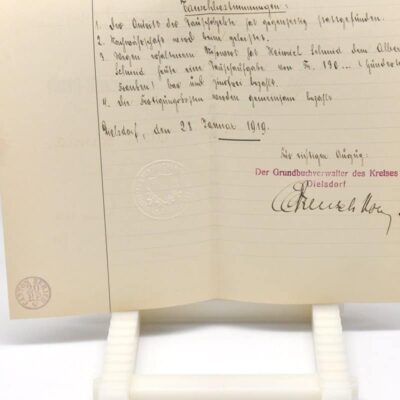 Tauschbestimmungen:
1. Der Antritt der Tauschobjekte hat gegenseitig stattgefunden.
2. Nachwährschaft wird keine geleistet.
3. Wegen erhaltenem Mehrwert hat Heinrich Schmid dem Albert
Schmid heute eine Tauschaufgabe von Fr. 190.– (Hundert
Franken) bar und zinsfrei bezahlt.
4. Die Fertigungskosten werden gemeinsam bezahlt.
Dielsdorf, den 28. Januar 1919.
Für richtigen Auszug:
Der Grundbuchverwalter des Kreises
Dielsdorf